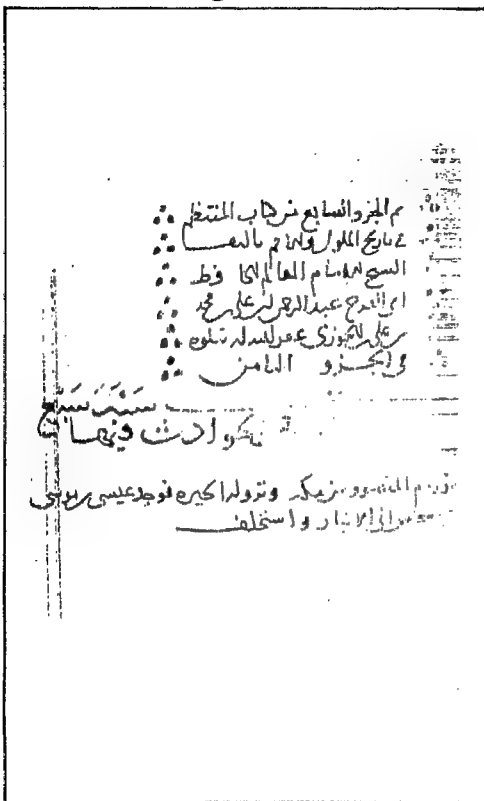 تم الجزو السابع من كتاب المنتظم
في تاريخ الملوك والامم تاليف
الشيخ الامام العالم الحافظ
ابي الفرج عبد الرحمن بن علي بن محمد
بن علي الجوزي عفر الله له تتلوه
في الجزو الثامن
سنة سبع
الحوادث فيها
قدوم المنصور من مكه ونزوله الحيره فوجد عيسى بن موسى
الى الانبار واستخلف